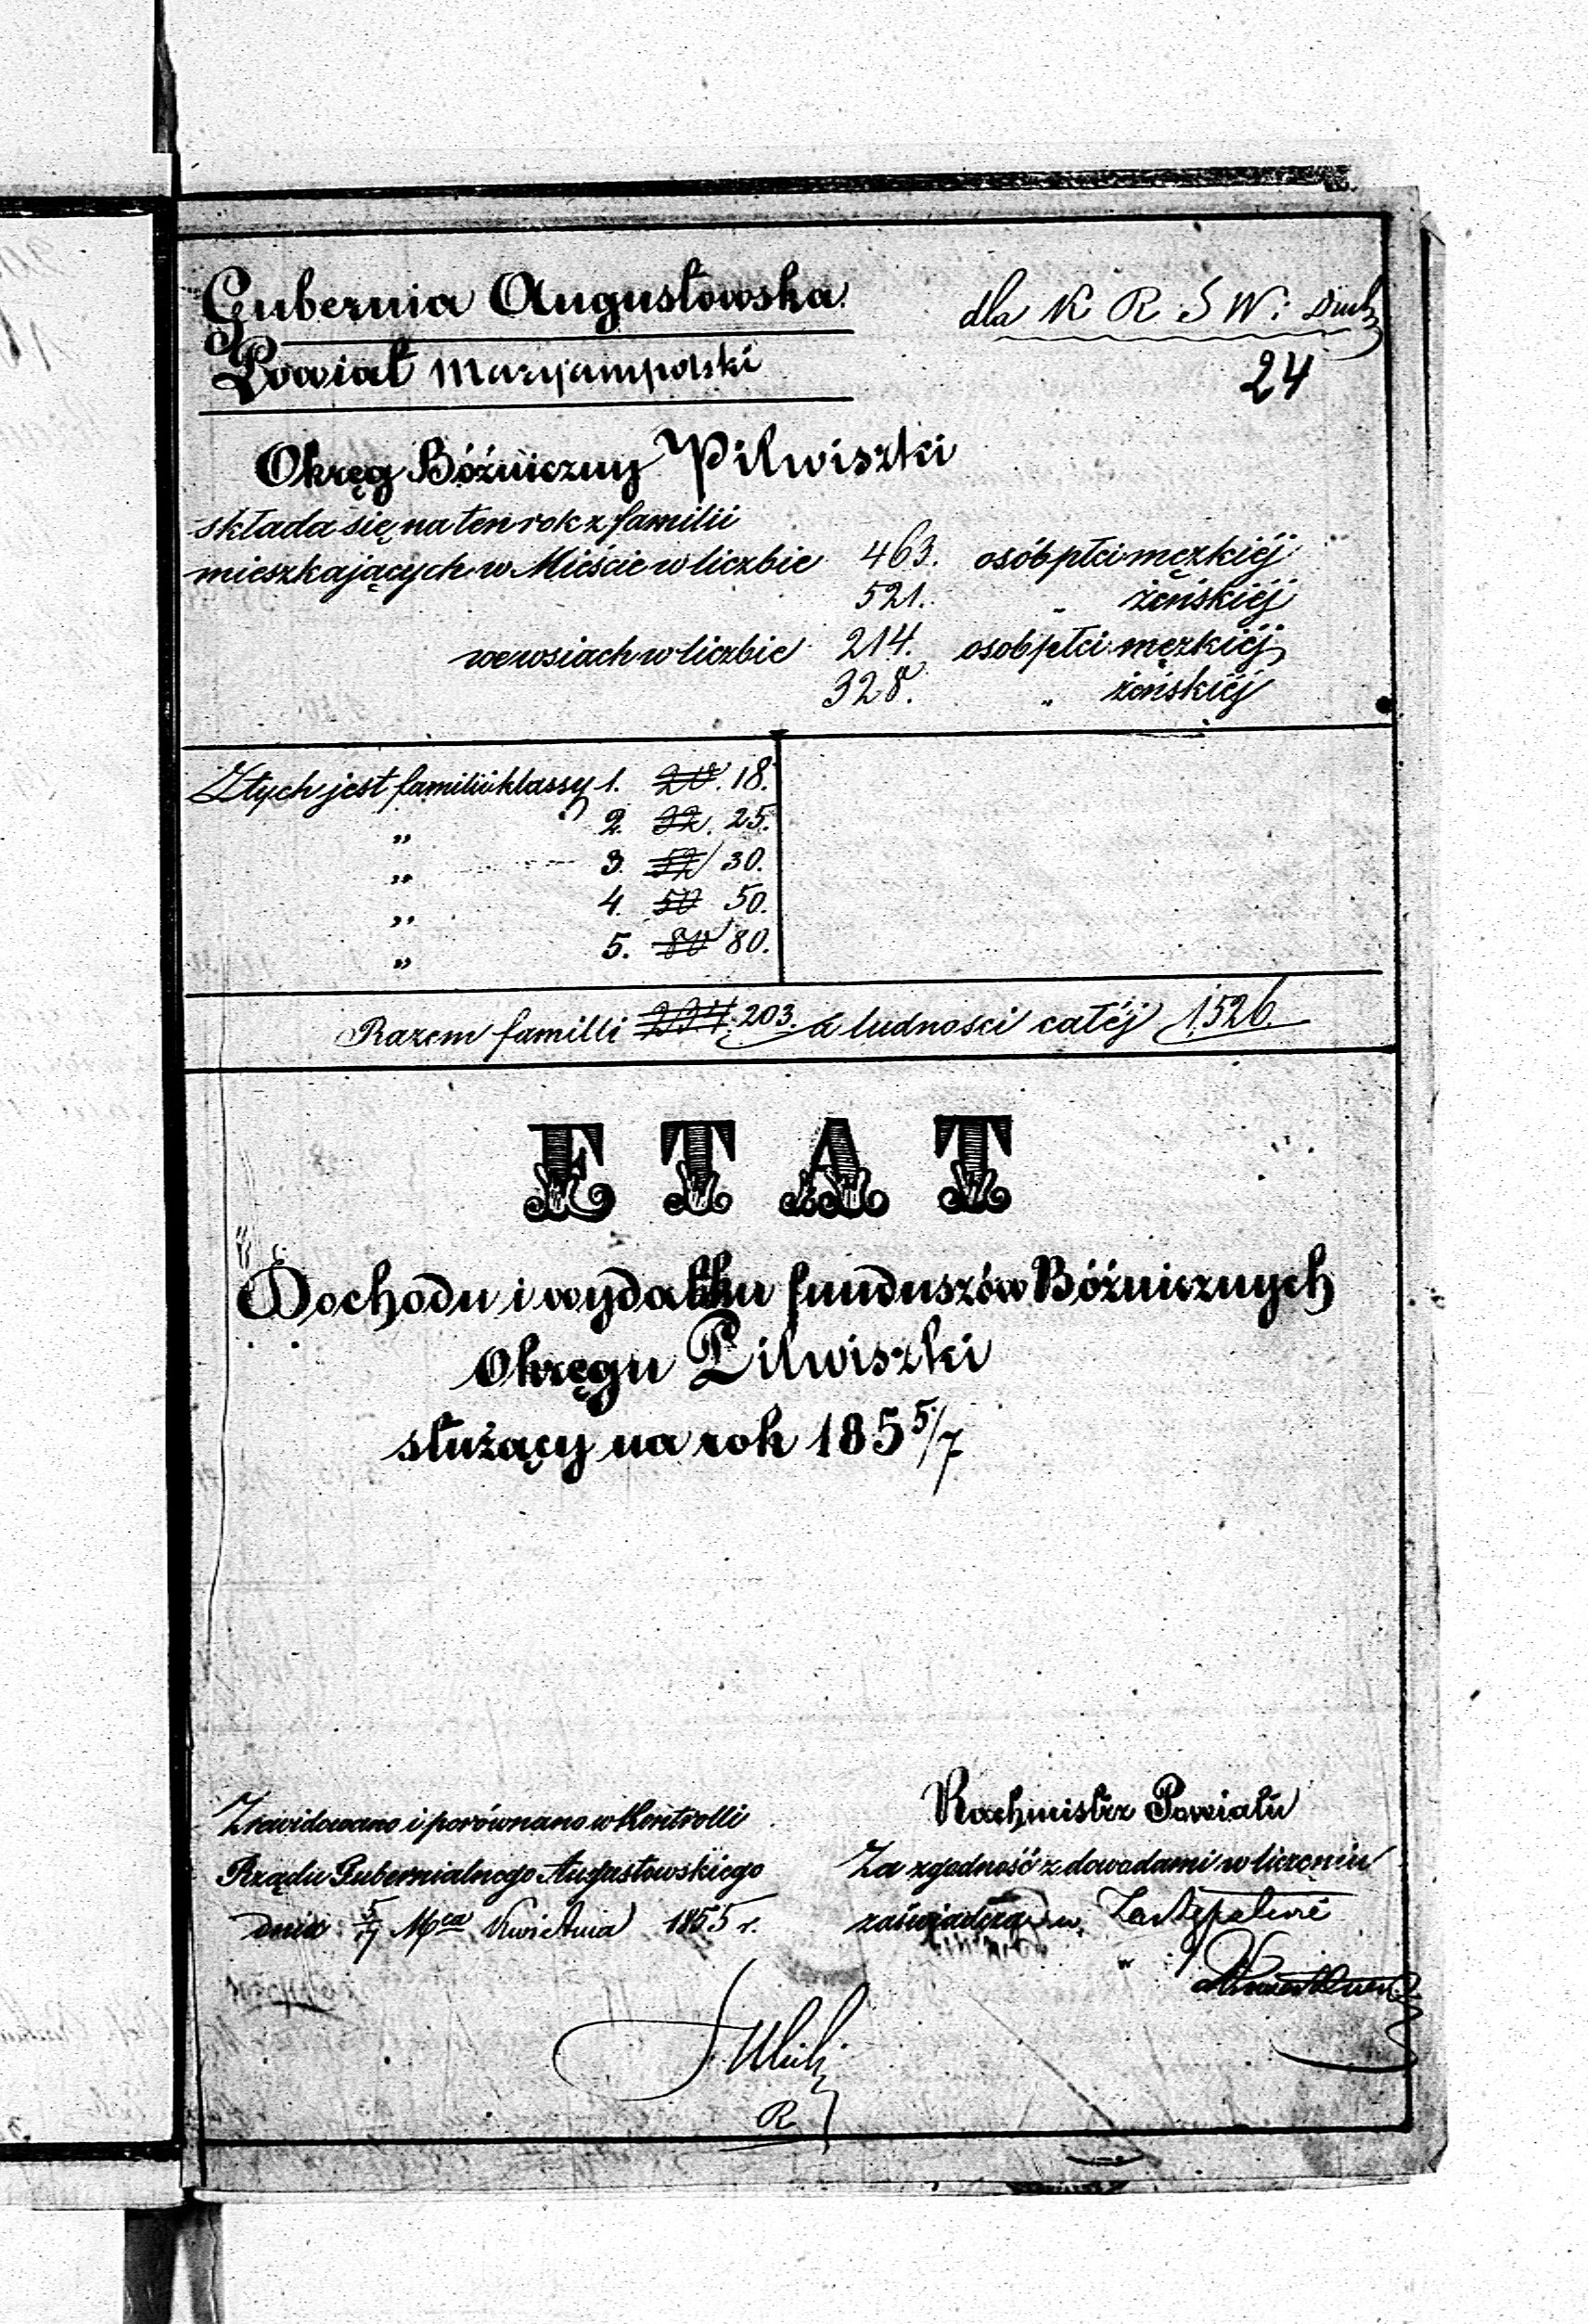 Gubernia Augustowska.
dla K R S W: Duch
Powiat Maryampolski
24
Okręg Bóźniczny Pilwiszki
składa się na ten rok z familii
mieszkających w Mieście w liczbie 463. osób płci męzkiéj
521. " żeńskiéj
we wsiach w liczbie 214. osob płci męzkiéj
328. " żeńskiéj
Z tych jest familii klassy 1. 20. 18.
" 2. 32. 25.
" 3. 52 30.
" 4. 50 50.
" 5. 80 80.
Razem familli 234. 203. a ludności całéj 1526.
ETAT
Dochodu i wydatku funduszów Bóźnicznych
Okręgu Pilwiszki
służący na rok 185 5/7
Zrewidowano i porównano w Kontrolli
Rządu Gubernialnego Augustowskiego
dnia 5/17 Mca Kwietnia 1855 r.
Rachmistrz Powiatu
Za zgodność z dowodami w liczeniu
zaświadcza w Zastępstwie
R